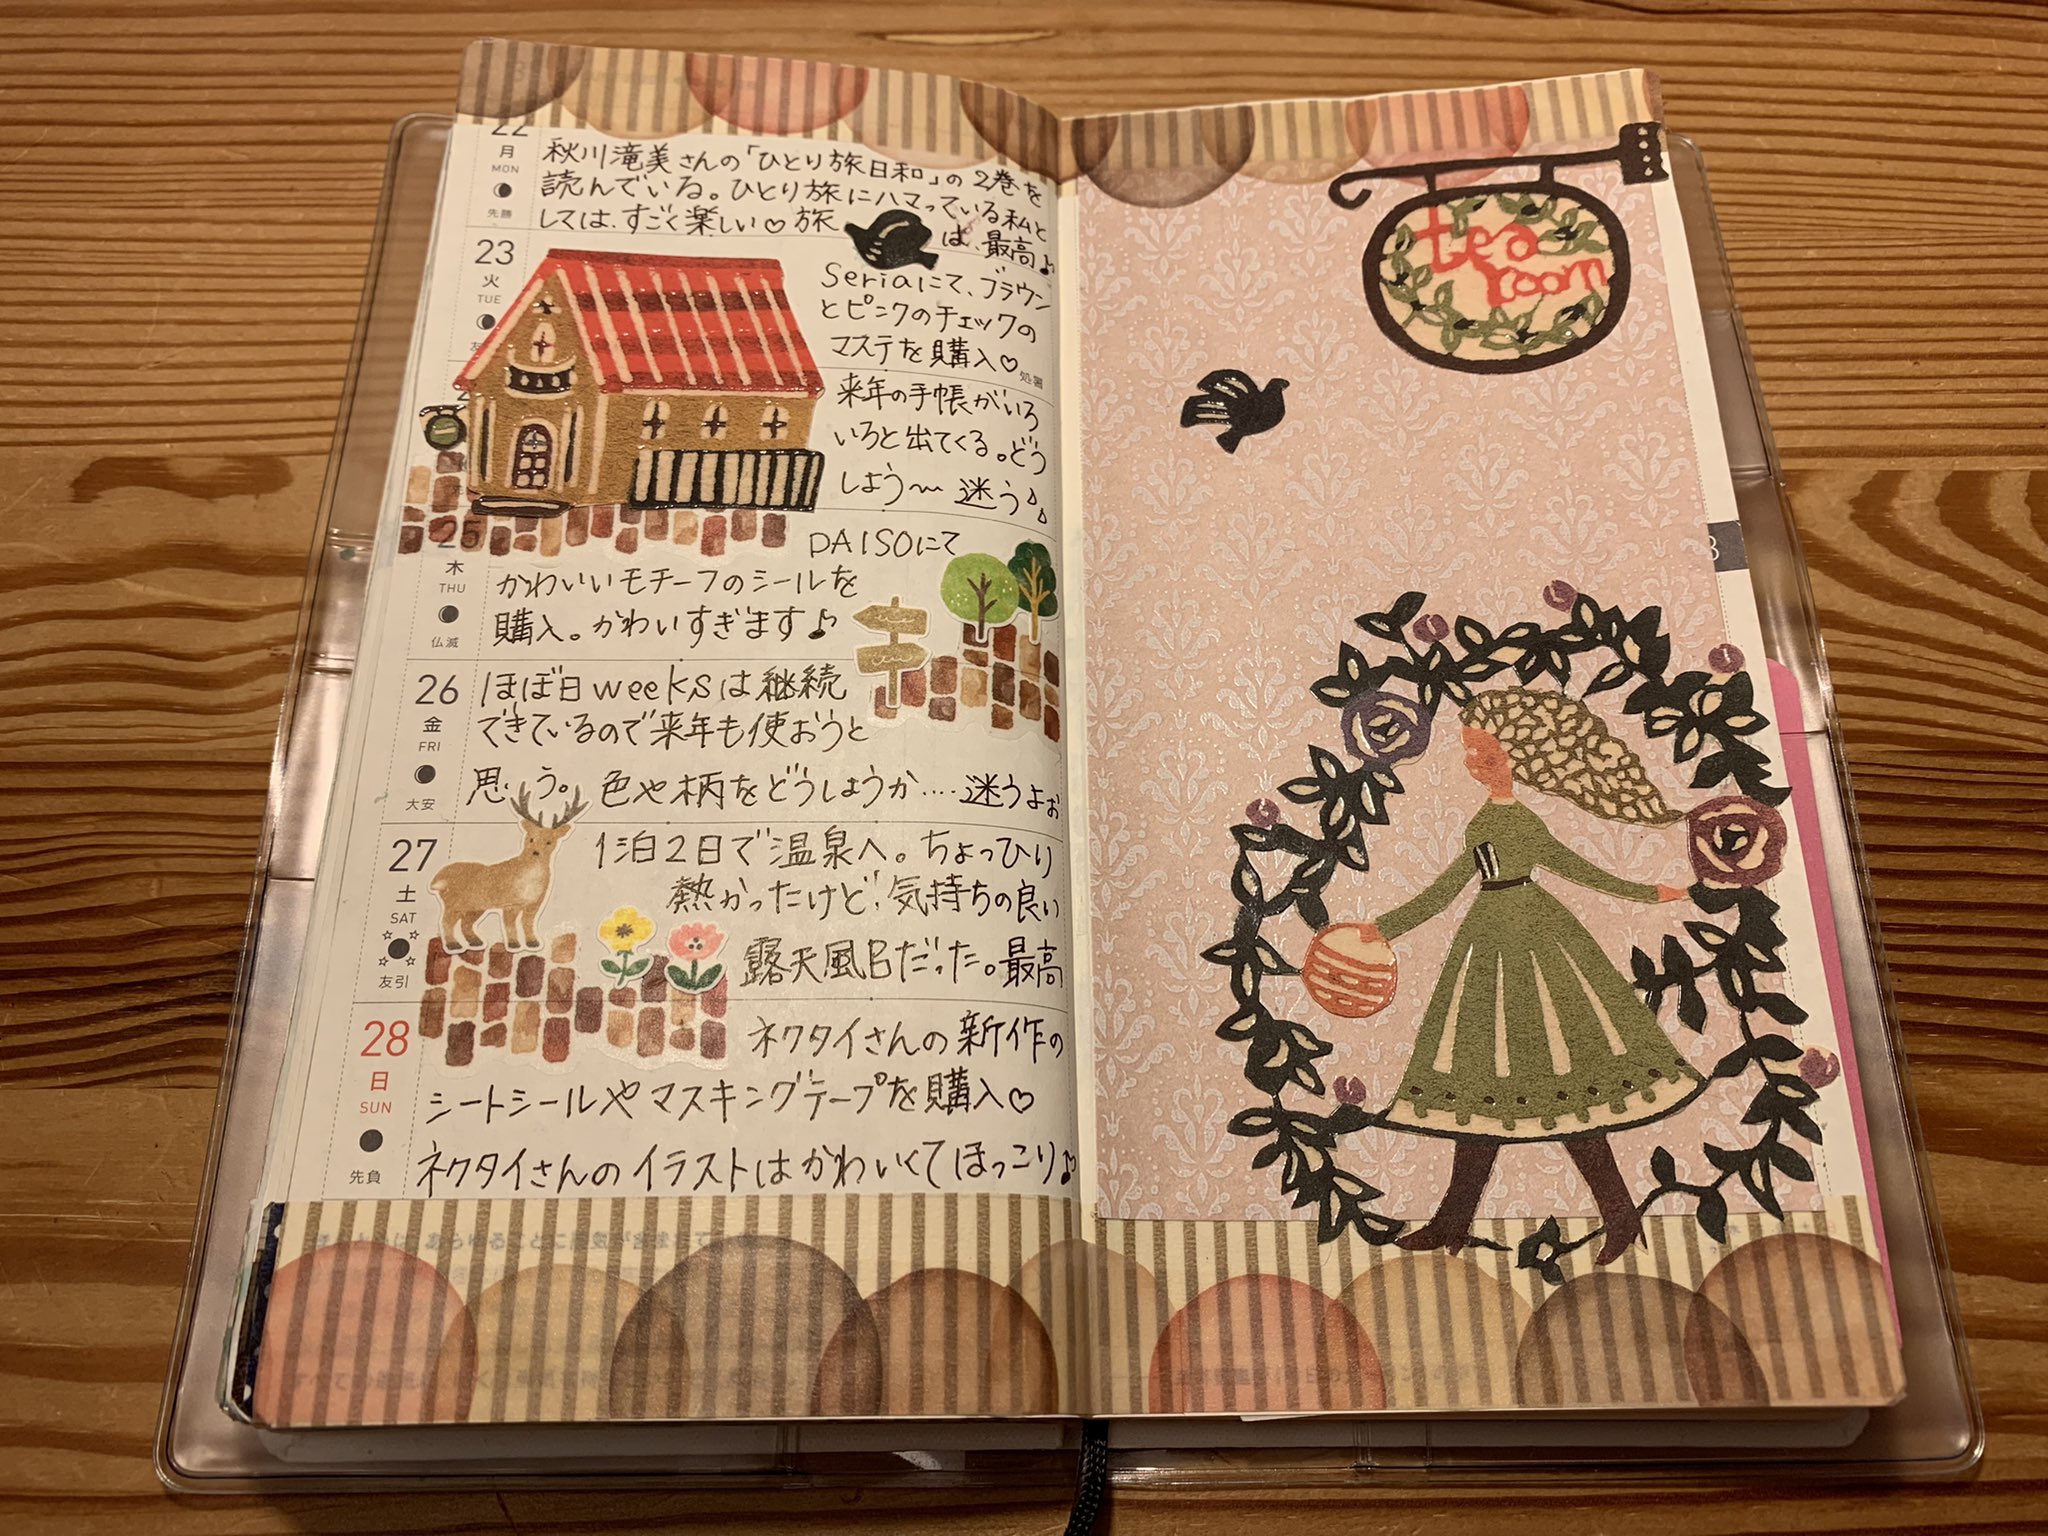 22
月
MON
先勝
秋川滝美さんの「ひとり旅日和」の2巻を
読んでいる。ひとり旅にハマっている私と
しては、すごく楽しい♡旅
は、最高♪
23
火
TUE
Seriaにて、ブラウン
とピンクのチェックの
マステを購入♡
処暑
来年の手帳がいろ
いろと出てくる。どう
しよう〜 迷う♪
25
木
THU
仏滅
DAISOにて
かわいいモチーフのシールを
購入。かわいすぎます♪
26
金
FRI
大安
ほぼ日weeksは継続
できているので来年も使おうと
思う。色や柄をどうしようか....迷うよぉ
27
土
SAT
友引
1泊2日で温泉へ。ちょっぴり
熱かったけど、気持ちの良い
露天風呂だった。最高
28
日
SUN
先負
ネクタイさんの新作の
シートシールやマスキングテープを購入♡
ネクタイさんのイラストはかわいくてほっこり♪
tea
room